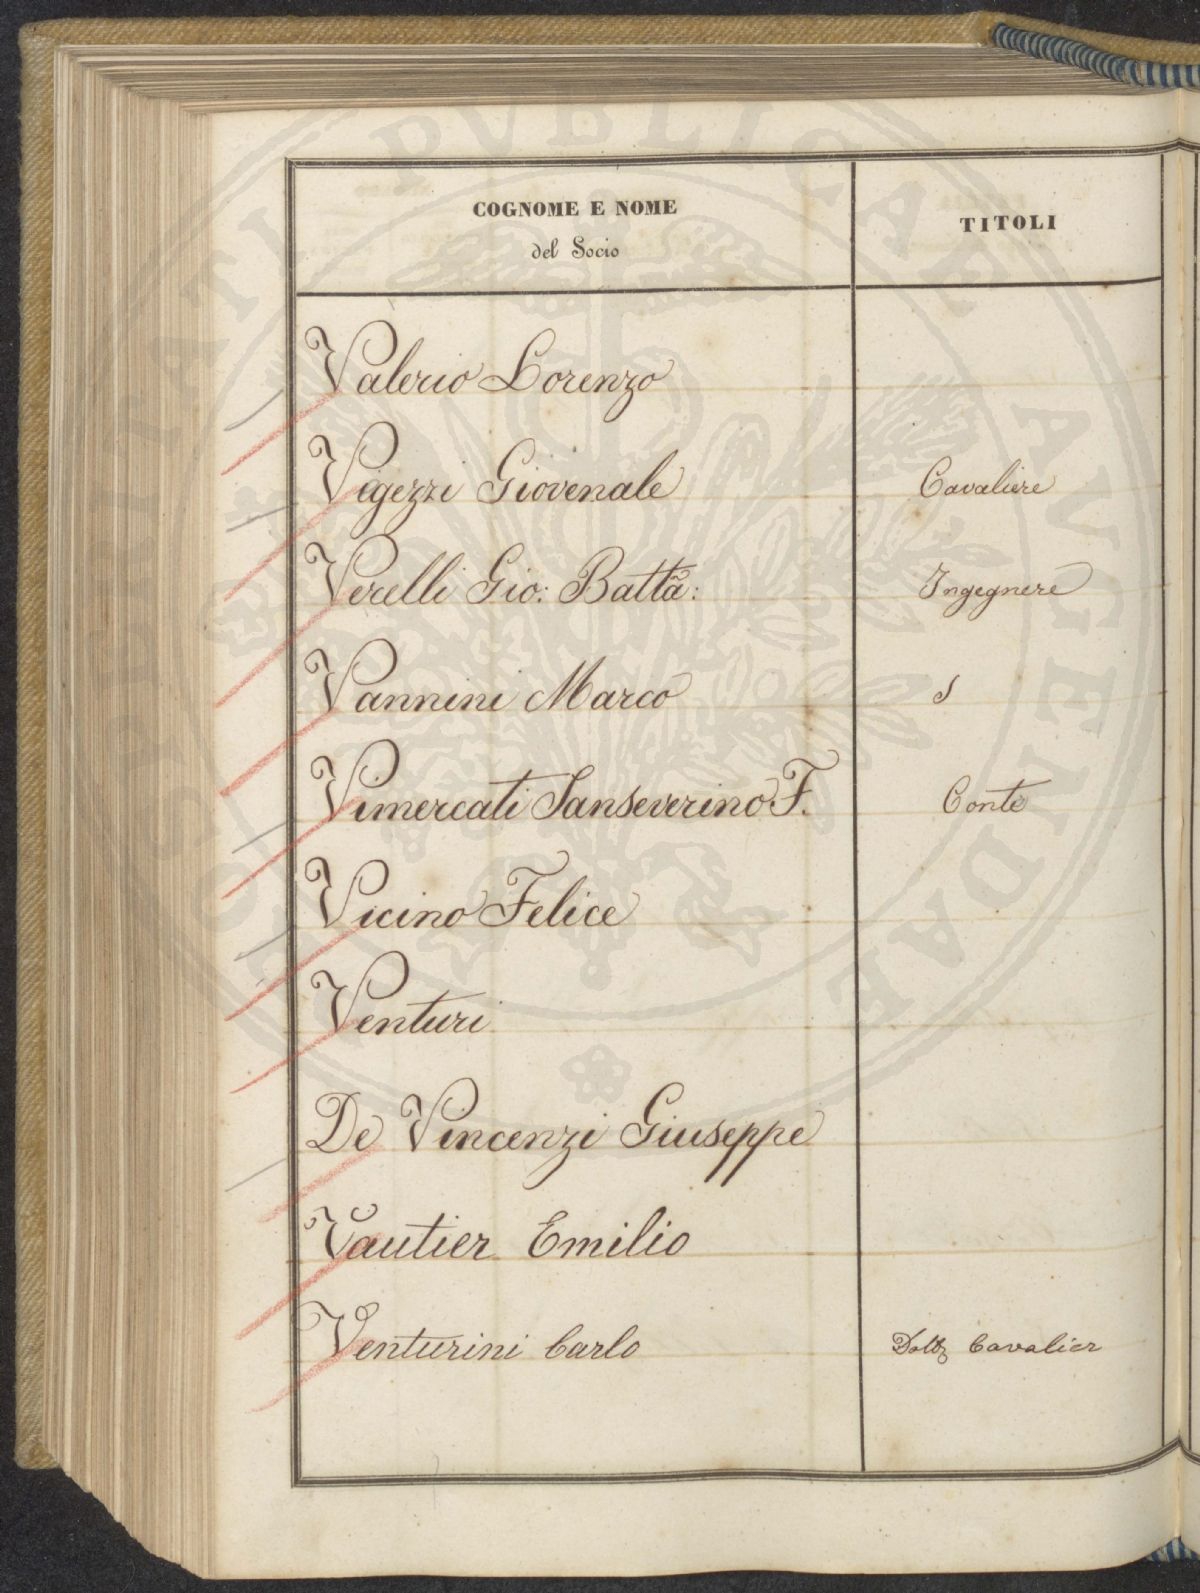 COGNOME E NOME
del Socio
TITOLI
Valerio Lorenzo
Vigezzi Giovenale Cavaliere
Vercelli Gio: Batta: Ingegnere
Vannini Marco
Vimercati Sanseverino F. Conte
Vicino Felice
Venturi
De Vincenzi Giuseppe
Vautier Emilio
Venturini Carlo Dott Cavalier